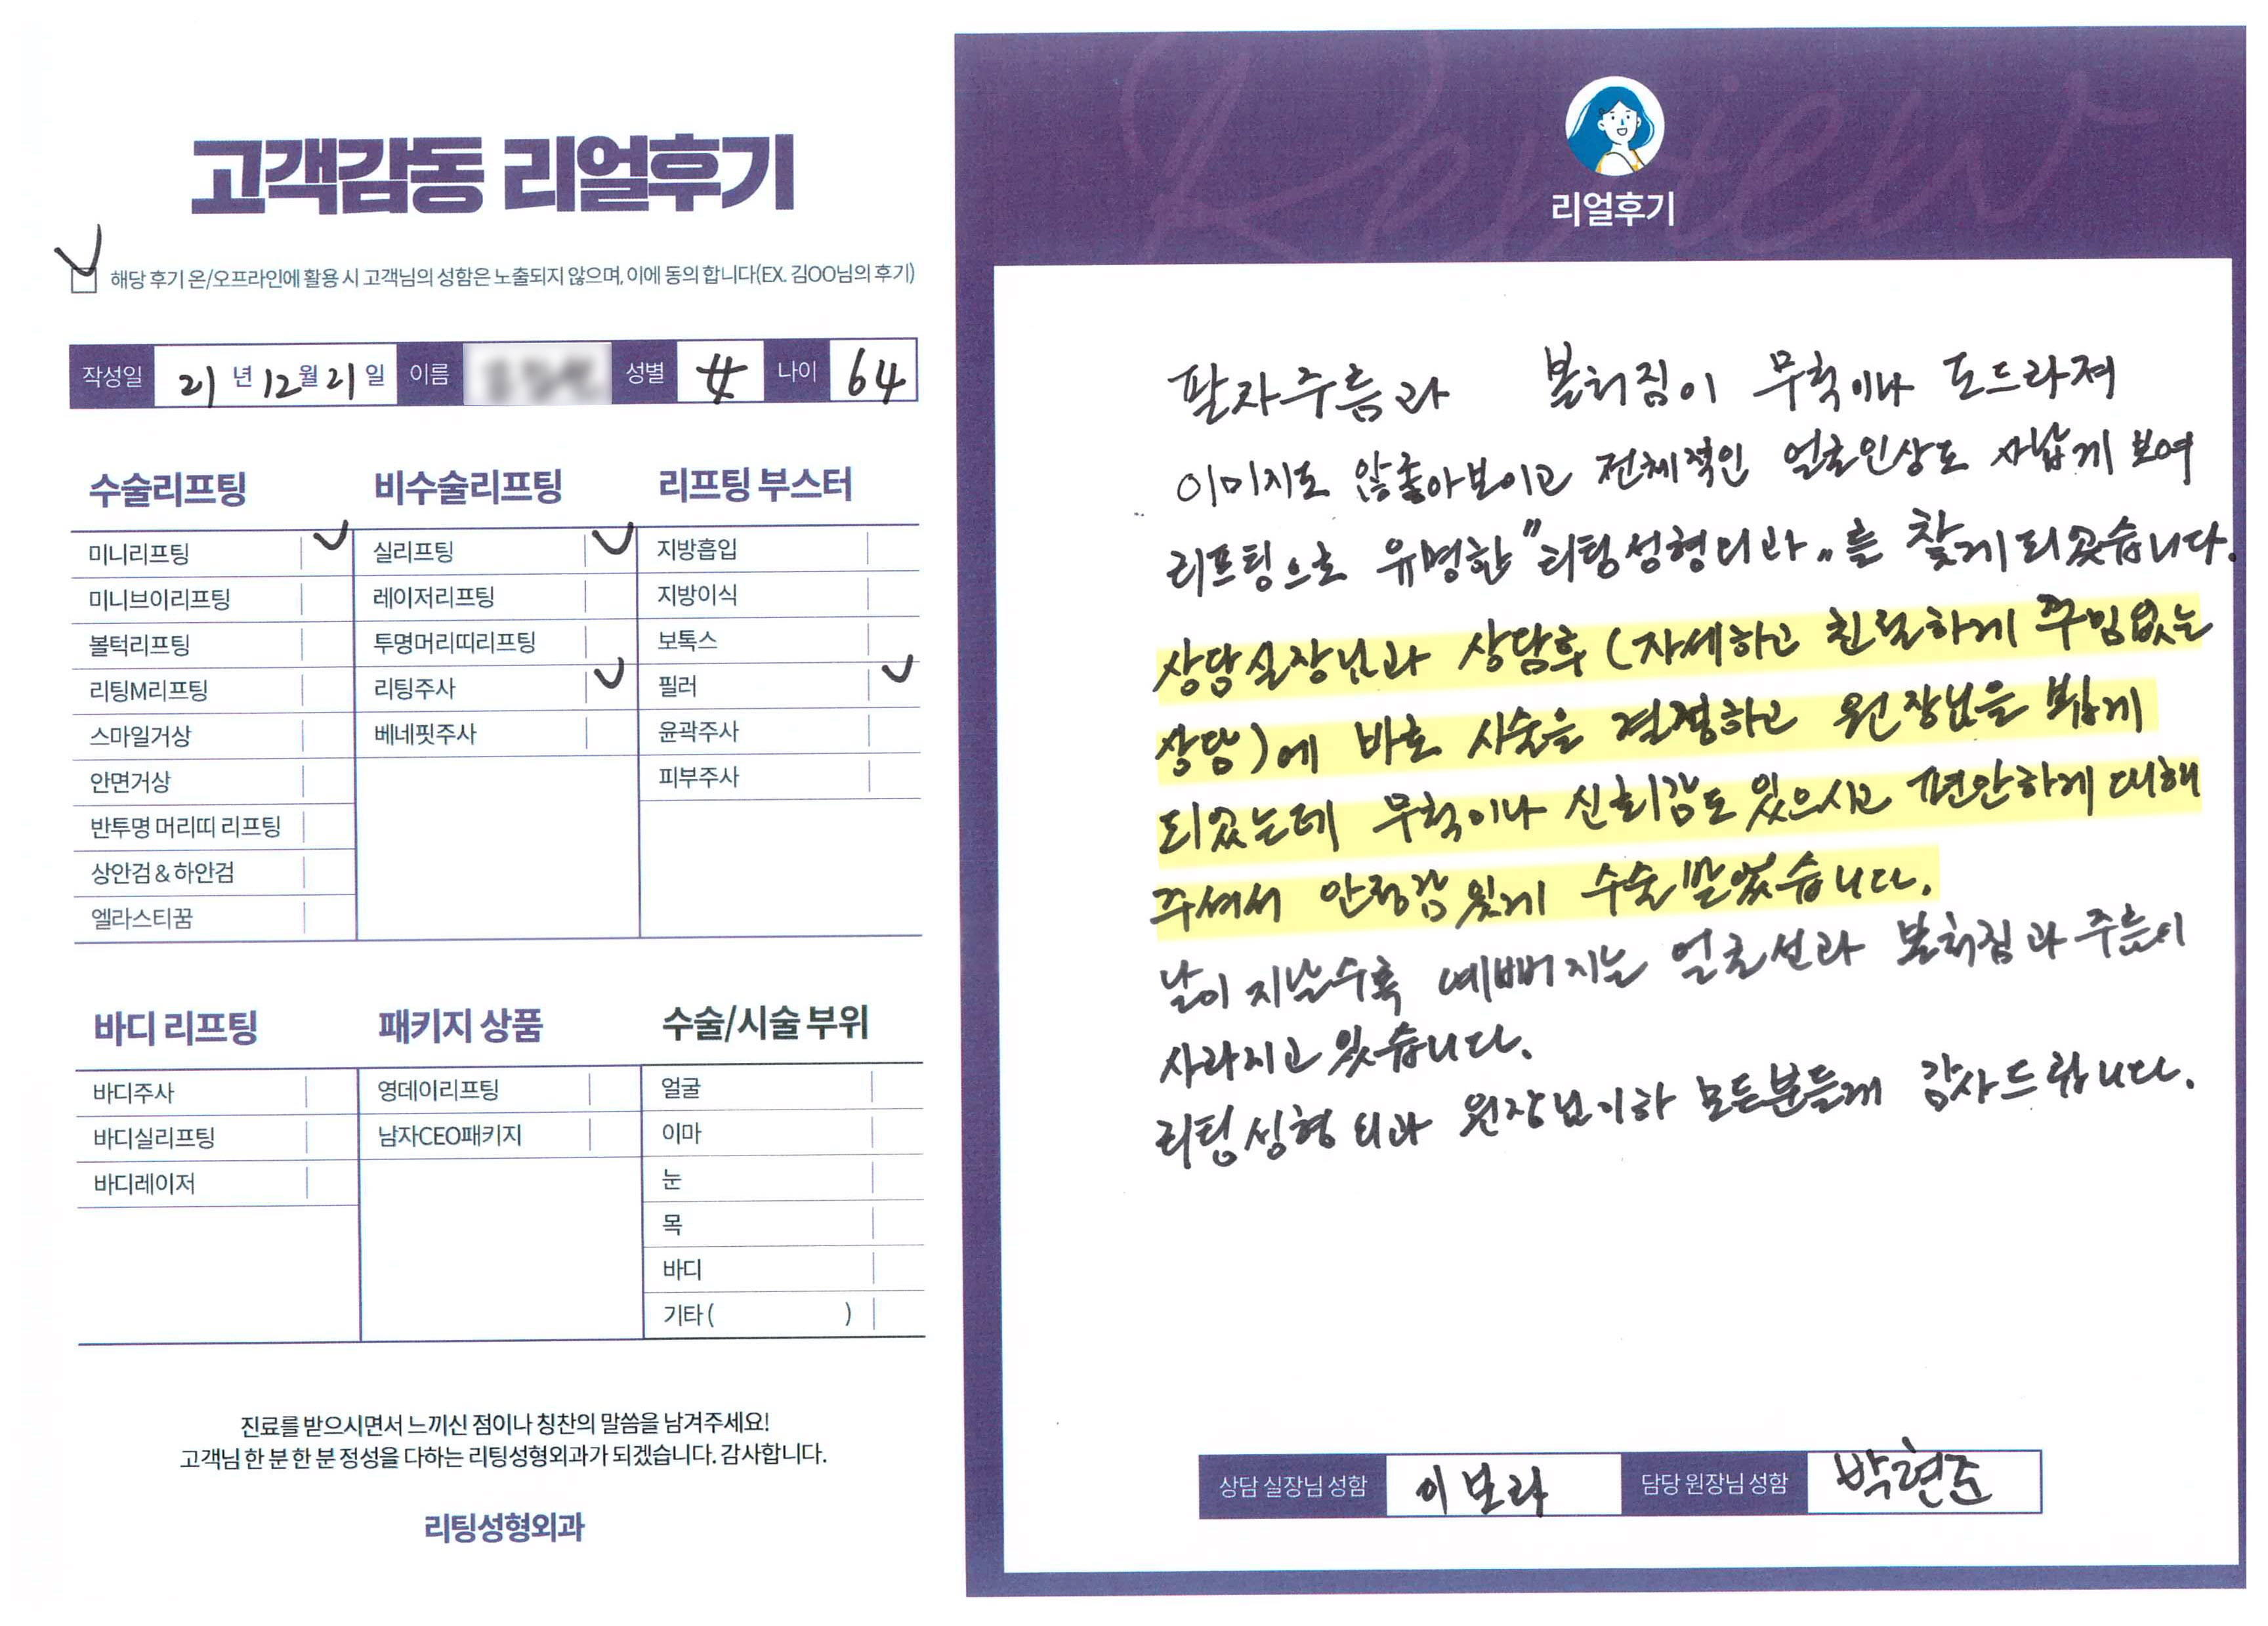 고객감동 리얼후기
해당 후기 온/오프라인에 활용 시 고객님의 성함은 노출되지 않으며, 이에 동의 합니다(EX. 김OO님의 후기)
작성일 21 년 12 월 21 일 이름 성별 女 나이 64
수술리프팅
미니리프팅
미니브이리프팅
볼턱리프팅
리팅M리프팅
스마일거상
안면거상
반투명 머리띠 리프팅
상안검 & 하안검
엘라스티꿈
비수술리프팅
실리프팅
레이저리프팅
투명머리띠리프팅
리팅주사
베네핏주사
리프팅 부스터
지방흡입
지방이식
보톡스
필러
윤곽주사
피부주사
바디 리프팅
바디주사
바디실리프팅
바디레이저
패키지 상품
영데이리프팅
남자CEO패키지
수술/시술 부위
얼굴
이마
눈
목
바디
기타 ( )
진료를 받으시면서 느끼신 점이나 칭찬의 말씀을 남겨주세요!
고객님 한 분 한 분 정성을 다하는 리팅성형외과가 되겠습니다. 감사합니다.
리팅성형외과
Review
리얼후기
팔자주름과 볼쳐짐이 무척이나 도드라져
이미지도 않좋아보이고 전체적인 얼굴인상도 사납게 보여
리프팅으로 유명한 "리팅성형외과"를 찾게되었습니다.
상담실장님과 상담후 (자세하고 친절하게 꾸밈없는
상담)에 바로 시술을 결정하고 원장님을 뵙게
되었는데 무척이나 신뢰감도 있으시고 편안하게 대해
주셔서 안정감있게 수술받았습니다.
날이 지날수록 예뻐지는 얼굴선과 볼쳐짐과 주름이
사라지고 있습니다.
리팅성형외과 원장님이하 모든분들께 감사드립니다.
상담 실장님 성함 이보라 담당 원장님 성함 박현준